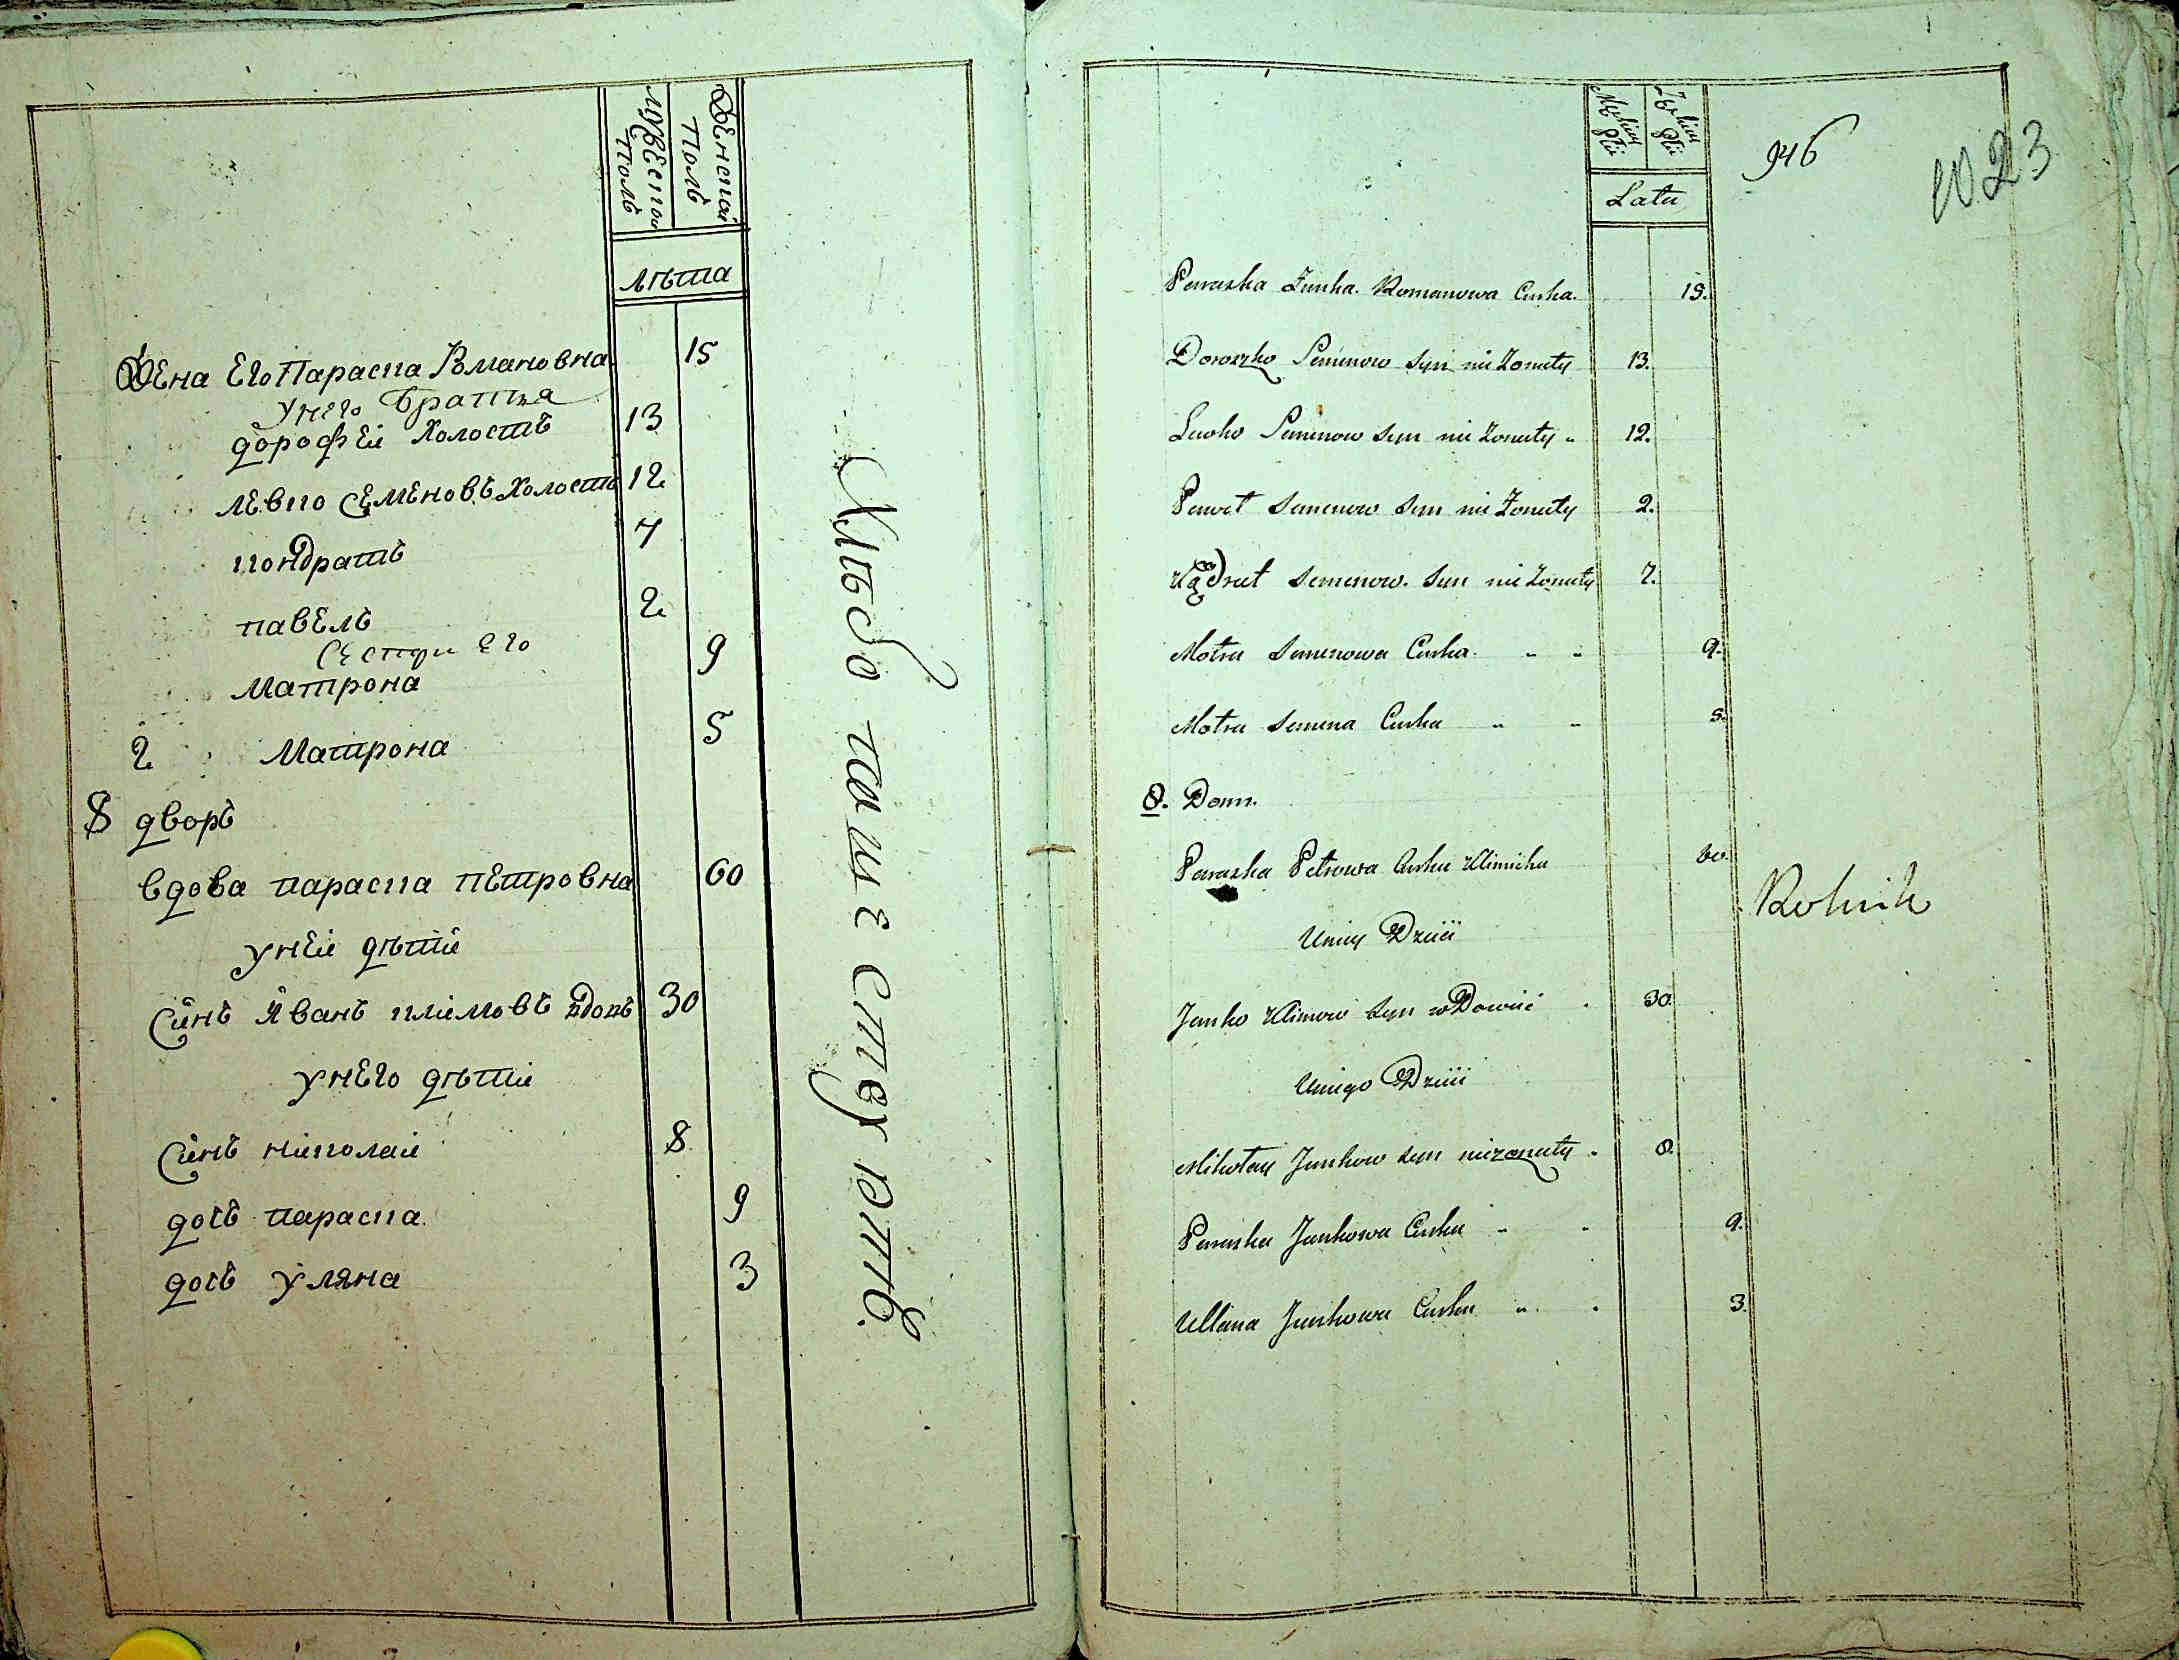 Женской Полъ
Мужеской Полъ
лѣта
Жена Его Параска Романовна 15
Унего Братья
дорофей Холостъ 13
левко Семеновъ Холостъ 12
кондратъ 7
павелъ 2
Сестри Его
Матрона 9
2 Матрона 5
8 дворъ
вдова параска петровна 60
унеи дѣти
Синъ Иванъ климовъ вдовъ 30
унего дѣти
Синъ николаи 8
дочь параска 9
дочь уляна 3
Хлѣбо пашествуютъ.
Męskiej Płci
Żeńskiej Płci
Lata
946
1023
Paraska Żonka Romanowa Curka. 15.
Doroszko Semenow Syn nie Zonaty 13.
Lewko Semenow Syn nie Zonaty 12.
Paweł Semenow Syn nie Zonaty 2.
Kądrat Semenow Syn nie Zonaty 7.
Motra Semenowa Curka 9.
Motra Semena Curka 5.
8. Dom.
Paraska Petrowa Curka Klimicha 60.
Uniey Dzieci
Rolnik
Janko Klimow Syn wDowiec 30.
Uniego Dzieci
Mikołay Jankow Syn niezonaty 8.
Paraska Jankowa Curka 9.
Ullana Jankowa Curka 3.